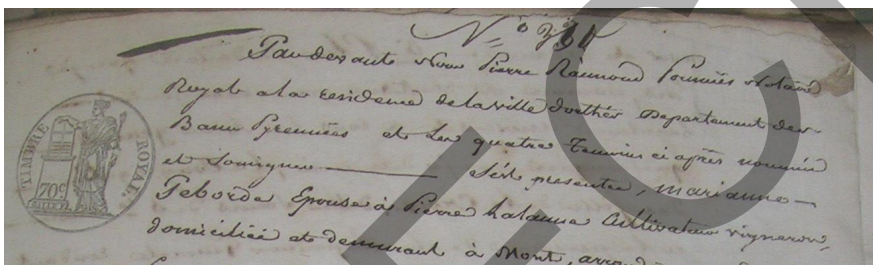 Pardevant Nous Pierre Raimond Notaire
Royal a la residence de la ville d'orthés Departement des
Basses Pyrennées et les quatre Temoins ci après nommés
et Soussignés S'est presentée, marianne
Epouse à Pierre Lalanne Cultivateur vigneron,
domiciliée et demeurant à Mont,
TIMBRE ROYAL.
70c